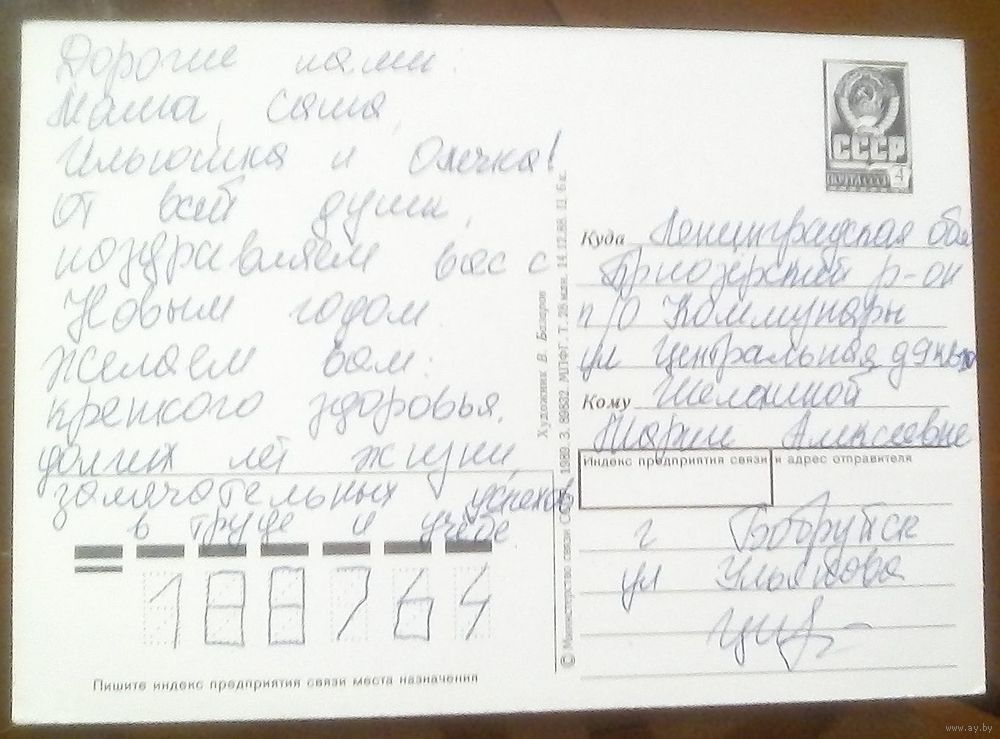 Дорогие нами:
Маша, Саша,
Ильюшка и Олечка!
От всей души,
поздравляем вас с
Новым годом.
Желаем вам:
крепкого здоровья,
долгих лет жизни,
замячательных успехов
в труде и учёбе.
188764
Пишите индекс предприятия связи места назначения
© Министерство связи СССР. 1989. З. 89932. МПФГ. Т. 28 млн. 14.12.88. Ц. 6 к.
Художник В. Базаров
СССР
4
Куда Ленинградская обл
Приозерский р-он
п/о Коммунары
ул Центральная д 9
Кому
Марие Алексеевне
Индекс предприятия связи и адрес отправителя
г Бобруйск
ул Ульянова
www.ay.by